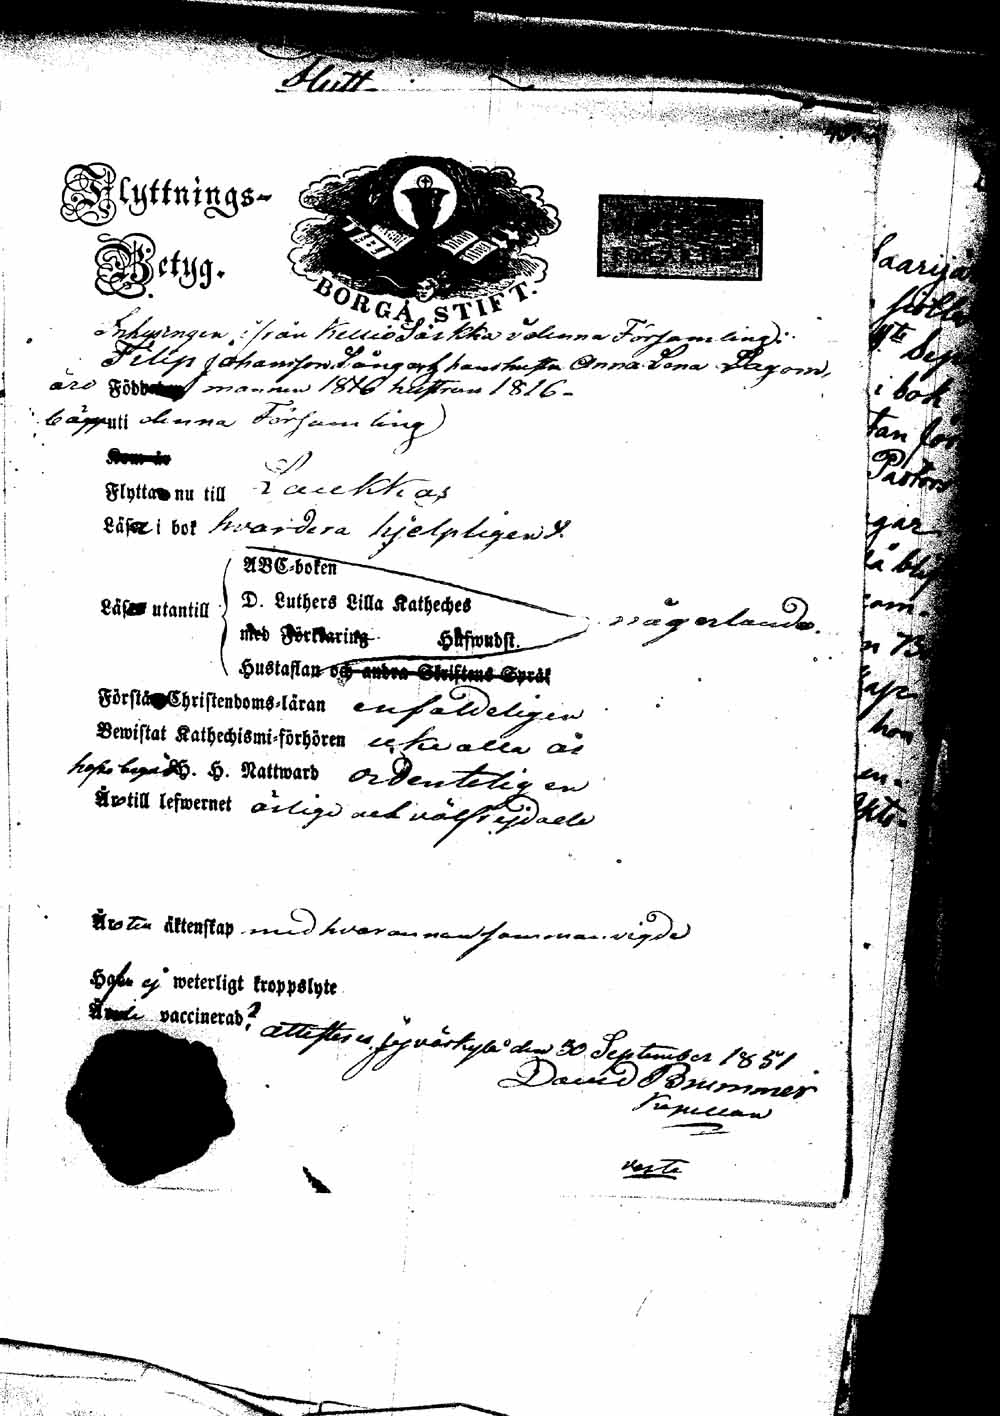 Flyttnings-
Betyg.
BORGÅ STIFT.
Inhysingen från Säkka i denna Församling:
Filip Johansson hans hustru Anna Lena Lagom,
äro Född mannen 1816 hustrun 1816-
uti denna Församling
Kom år
Flytta nu till Laukkas
Läsa i bok hvardera hjelpligen
ABC-boken
Läsa utantill D. Luthers Lilla Katheches någorlunda.
med Förklaring Hufwudst.
Hustaflan och andra Skriftens Språk
Förstå Christendoms-läran enfaldeligen
Bewistat Kathechismi-förhören icke alla år
H. H. Nattward ordenteligen
Äro till lefwernet ärlige och välfrejdade
Äro ten äktenskap med hvarannan sammanvigde
Hafva ej weterligt kroppslyte
Äro vaccinerade,
attesteras Jyväskylä den 30 September 1851
David Brummer
Kapellan
Saarijä
Sep
i bok
Pastors
gar
om.
hon
en.